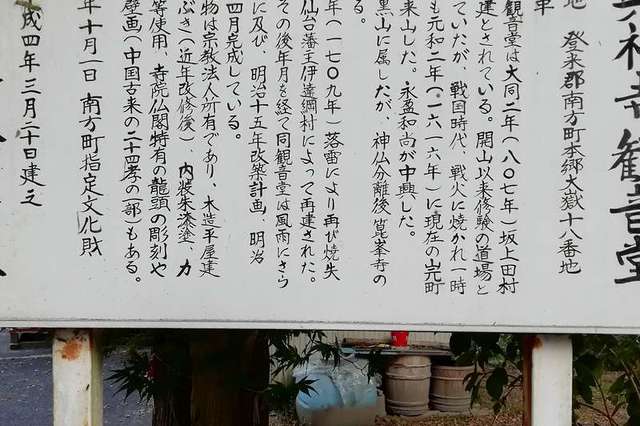 寺観音堂
地 登米郡南方町本郷大嶽十八番地
観音堂は大同二年(八〇七年)坂上田村
建とされている。開山以来修験の道場と
ていたが、戦国時代、戦火に焼かれ一時
も元和二年(一六一六年)に現在の山元町
来山した。永盈和尚が中興した。
黒山に属したが、神仏分離後箟峯寺の
る。
年(一七〇九年)落雷により再び焼失
仙台藩主伊達綱村によって再建された。
その後年月を経て同観音堂は風雨にさら
に及び、明治十五年改築計画、明治
四月完成している。
物は宗教法人所有であり、木造平屋建
ぶき(近年改修後)、内装朱漆塗、力
等使用、寺院仏閣特有の龍頭の彫刻や
壁画(中国古来の二十四孝の一部)もある。
年十月一日 南方町指定文化財
成四年三月二十日建之